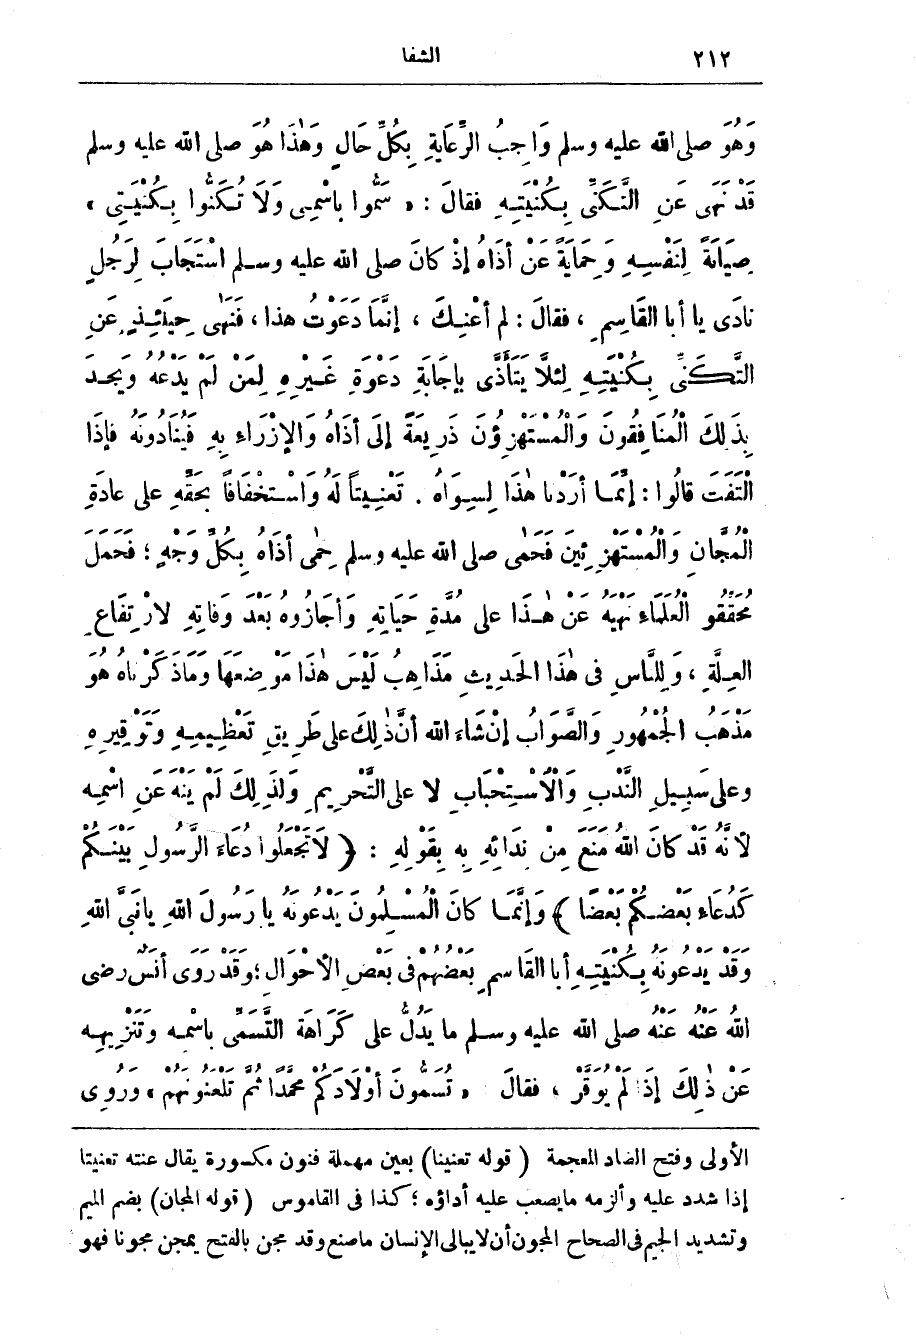 ٢١٢ الشفا
وَهُوَ صلى الله عليه وسلم وَاجِبُ الرِّعَايَةِ بِكُلِّ حَالٍ وَهٰذَا هُوَ صلى الله عليه وسلم
قَدْ نَهَى عَنِ التَّكَنِّى بِكُنْيَتِهِ فقالَ : « سَمُّوا بِاسْمِى وَلَا تُكَنُّوا بِكُنْيَتِى »
صِيَانَةً لِنَفْسِهِ وَحِمَايَةً عَنْ أذَاهُ إذْ كانَ صلى الله عليه وسلم اسْتَجَابَ لِرَجُلٍ
نادَى يا أبا القَاسِمِ ، فقالَ : لم أعْنِكَ ، إنَّمَا دَعَوْتُ هذا ، فَنَهَى حِينَئِذٍ عَنِ
التَّكَنِّى بِكُنْيَتِهِ لِئلَّا يَتَأَذَّى بإجَابَةِ دَعْوَةِ غَيْرِهِ لِمَنْ لَمْ يَدْعُهُ وَيجد
بِذَلِكَ الْمُنَافِقُونَ وَالْمُسْتَهْزِؤُنَ ذَرِيعَةً إلَى أذَاهُ وَالإزْرَاءِ بِهِ فَيُنَادُونَهُ فإذَا
الْتَفَتَ قالُوا : إنَّمَا أرَدْنا هٰذَا لِسِوَاهُ . تَعْنِيتاً لَهُ وَاسْتِخْفَافاً بحَقِّهِ على عادَةِ
الْمُجَّانِ وَالْمُسْتَهْزِئِينَ فَحَمٰى صلى الله عليه وسلم حِمٰى أذَاهُ بِكُلِّ وَجْهٍ ؛ فَحَمَلَ
مُحَقِّقُو الْعُلَمَاءِ نَهْيَهُ عَنْ هٰذَا على مُدَّةِ حَيَاتِهِ وَأجَازُوهُ بَعْدَ وَفاتِهِ لارْتِفَاعِ
العِلَّةِ ، وَلِلنَّاسِ فى هٰذَا الحَدِيثِ مَذَاهِبُ لَيْسَ هٰذَا مَوْضِعَهَا وَمَاذَكَرْناهُ هُوَ
مَذْهَبُ الجُمْهُورِ وَالصَّوَابُ إنْ شاءَ الله أنَّ ذٰلِكَ على طَرِيقِ تَعْظِيمِهِ وَتَوْقِيرِهِ
وعلى سَبِيلِ النَّدْبِ وَالْاسْتِحْبَابِ لا على التَّحْرِيمِ وَلذَلِكَ لَمْ يَنْهَ عَنِ اسْمِهِ
لأنَّهُ قَدْ كانَ اللهُ مَنَعَ مِنْ نِدَائِهِ بِهِ بِقَوْلِهِ : ﴿ لَا تَجْعَلُوا دُعَاءَ الرَّسُولِ بَيْنَكُمْ
كَدُعَاءِ بَعْضِكُمْ بَعْضًا ﴾ وَإنَّمَا كانَ الْمُسْلِمُونَ يَدْعُونَهُ يا رَسُولَ اللهِ يانَبِىَّ اللهِ
وَقَدْ يَدْعُونَهُ بِكُنْيَتِهِ أبا القَاسِمِ بَعْضُهُمْ فى بَعْضِ الأحْوَالِ ؛ وقَدْ رَوَى أنَسٌ رضى
اللهُ عَنْهُ عَنْهُ صلى الله عليه وسلم ما يَدُلُّ على كَرَاهَةِ التَّسَمِّى بِاسْمِهِ وَتَنْزِيهِهِ
عَنْ ذٰلِكَ إذَا لَمْ يُوَقَّرْ ، فقالَ « تُسَمُّونَ أوْلَادَكُمْ مُحَمَّدًا ثُمَّ تَلْعَنُونَهُمْ » وَرُوِىَ
الأولى وفتح الضاد المعجمة ( قوله تعنيتا) بعين مهملة فنون مكسورة يقال عنته تعنيتا
إذا شدد عليه وألزمه مايصعب عليه أداؤه ؛ كذا فى القاموس ( قوله المجان) بضم الميم
وتشديد الجيم فى الصحاح المجون أن لايبالى الإنسان ماصنع وقد مجن بالفتح يمجن مجونا فهو